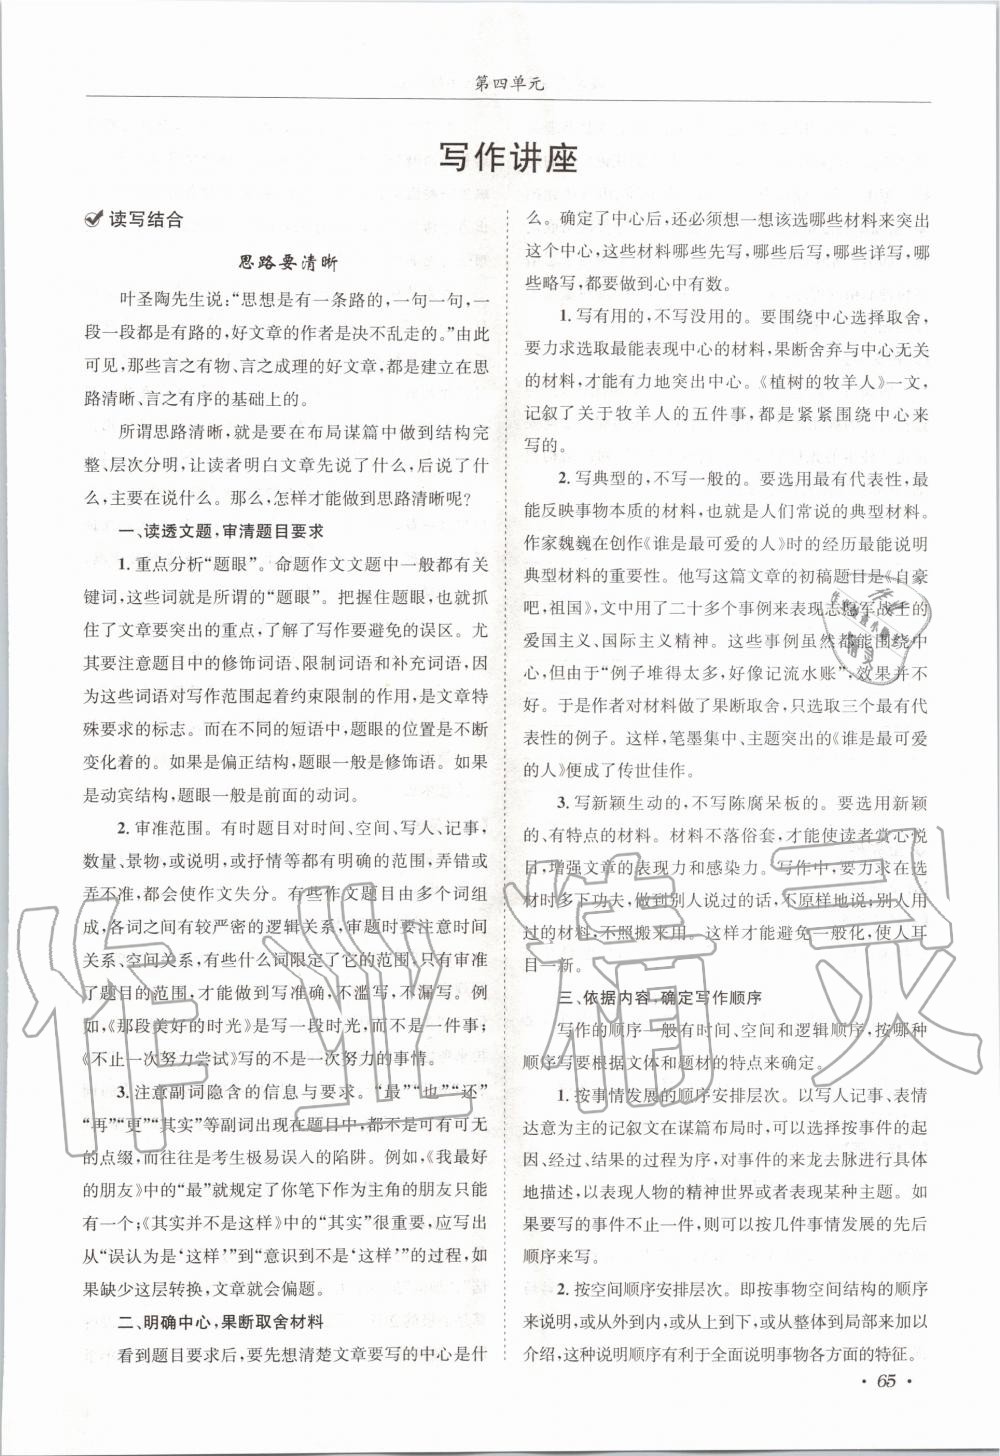 第四单元
写作讲座
读写结合
思路要清晰
叶圣陶先生说：“思想是有一条路的，一句一句，
一段一段都是有路的，好文章的作者是决不乱走的。”由此
可见，那些言之有物、言之成理的好文章，都是建立在思
路清晰、言之有序的基础上的。
所谓思路清晰，就是要在布局谋篇中做到结构完
整、层次分明，让读者明白文章先说了什么，后说了什
么，主要在说什么。那么，怎样才能做到思路清晰呢？
一、读透文题，审清题目要求
1. 重点分析“题眼”。命题作文文题中一般都有关
键词，这些词就是所谓的“题眼”。把握住题眼，也就抓
住了文章要突出的重点，了解了写作要避免的误区。尤
其要注意题目中的修饰词语、限制词语和补充词语，因
为这些词语对写作范围起着约束限制的作用，是文章特
殊要求的标志。而在不同的短语中，题眼的位置是不断
变化着的。如果是偏正结构，题眼一般是修饰语。如果
是动宾结构，题眼一般是前面的动词。
2. 审准范围。有时题目对时间、空间、写人、记事，
数量、景物，或说明，或抒情等都有明确的范围，弄错或
弄不准，都会使作文失分。有些作文题目由多个词组
成，各词之间有较严密的逻辑关系，审题时要注意时间
关系、空间关系，有些什么词限定了它的范围。只有审准
了题目的范围，才能做到写准确，不滥写，不漏写。例
如，《那段美好的时光》是写一段时光，而不是一件事；
《不止一次努力尝试》写的不是一次努力的事情。
3. 注意副词隐含的信息与要求。“最”“也”“还”
“再”“更”“其实”等副词出现在题目中，都不是可有可无
的点缀，而往往是考生极易误入的陷阱。例如，《我最好
的朋友》中的“最”就规定了你笔下作为主角的朋友只能
有一个；《其实并不是这样》中的“其实”很重要，应写出
从“误认为是‘这样’”到“意识到不是‘这样’”的过程，如
果缺少这层转换，文章就会偏题。
二、明确中心，果断取舍材料
看到题目要求后，要先想清楚文章要写的中心是什
么。确定了中心后，还必须想一想该选哪些材料来突出
这个中心，这些材料哪些先写，哪些后写，哪些详写，哪
些略写，都要做到心中有数。
1. 写有用的，不写没用的。要围绕中心选择取舍，
要力求选取最能表现中心的材料，果断舍弃与中心无关
的材料，才能有力地突出中心。《植树的牧羊人》一文，
记叙了关于牧羊人的五件事，都是紧紧围绕中心来
写的。
2. 写典型的，不写一般的。要选用最有代表性，最
能反映事物本质的材料，也就是人们常说的典型材料。
作家魏巍在创作《谁是最可爱的人》时的经历最能说明
典型材料的重要性。他写这篇文章的初稿题目是《自豪
吧，祖国》，文中用了二十多个事例来表现志愿军战士的
爱国主义、国际主义精神。这些事例虽然都能围绕中
心，但由于“例子堆得太多，好像记流水账”，效果并不
好。于是作者对材料做了果断取舍，只选取三个最有代
表性的例子。这样，笔墨集中、主题突出的《谁是最可爱
的人》便成了传世佳作。
3. 写新颖生动的，不写陈腐呆板的。要选用新颖
的、有特点的材料。材料不落俗套，才能使读者赏心悦
目，增强文章的表现力和感染力。写作中，要力求在选
材时多下功夫，做到别人说过的话，不原样地说；别人用
过的材料，不照搬来用。这样才能避免一般化，使人耳
目一新。
三、依据内容，确定写作顺序
写作的顺序一般有时间、空间和逻辑顺序，按哪种
顺序写要根据文体和题材的特点来确定。
1. 按事情发展的顺序安排层次。以写人记事、表情
达意为主的记叙文在谋篇布局时，可以选择按事件的起
因、经过、结果的过程为序，对事件的来龙去脉进行具体
地描述，以表现人物的精神世界或者表现某种主题。如
果要写的事件不止一件，则可以按几件事情发展的先后
顺序来写。
2. 按空间顺序安排层次。即按事物空间结构的顺序
来说明，或从外到内，或从上到下，或从整体到局部来加以
介绍，这种说明顺序有利于全面说明事物各方面的特征。
· 65 ·
作业精灵